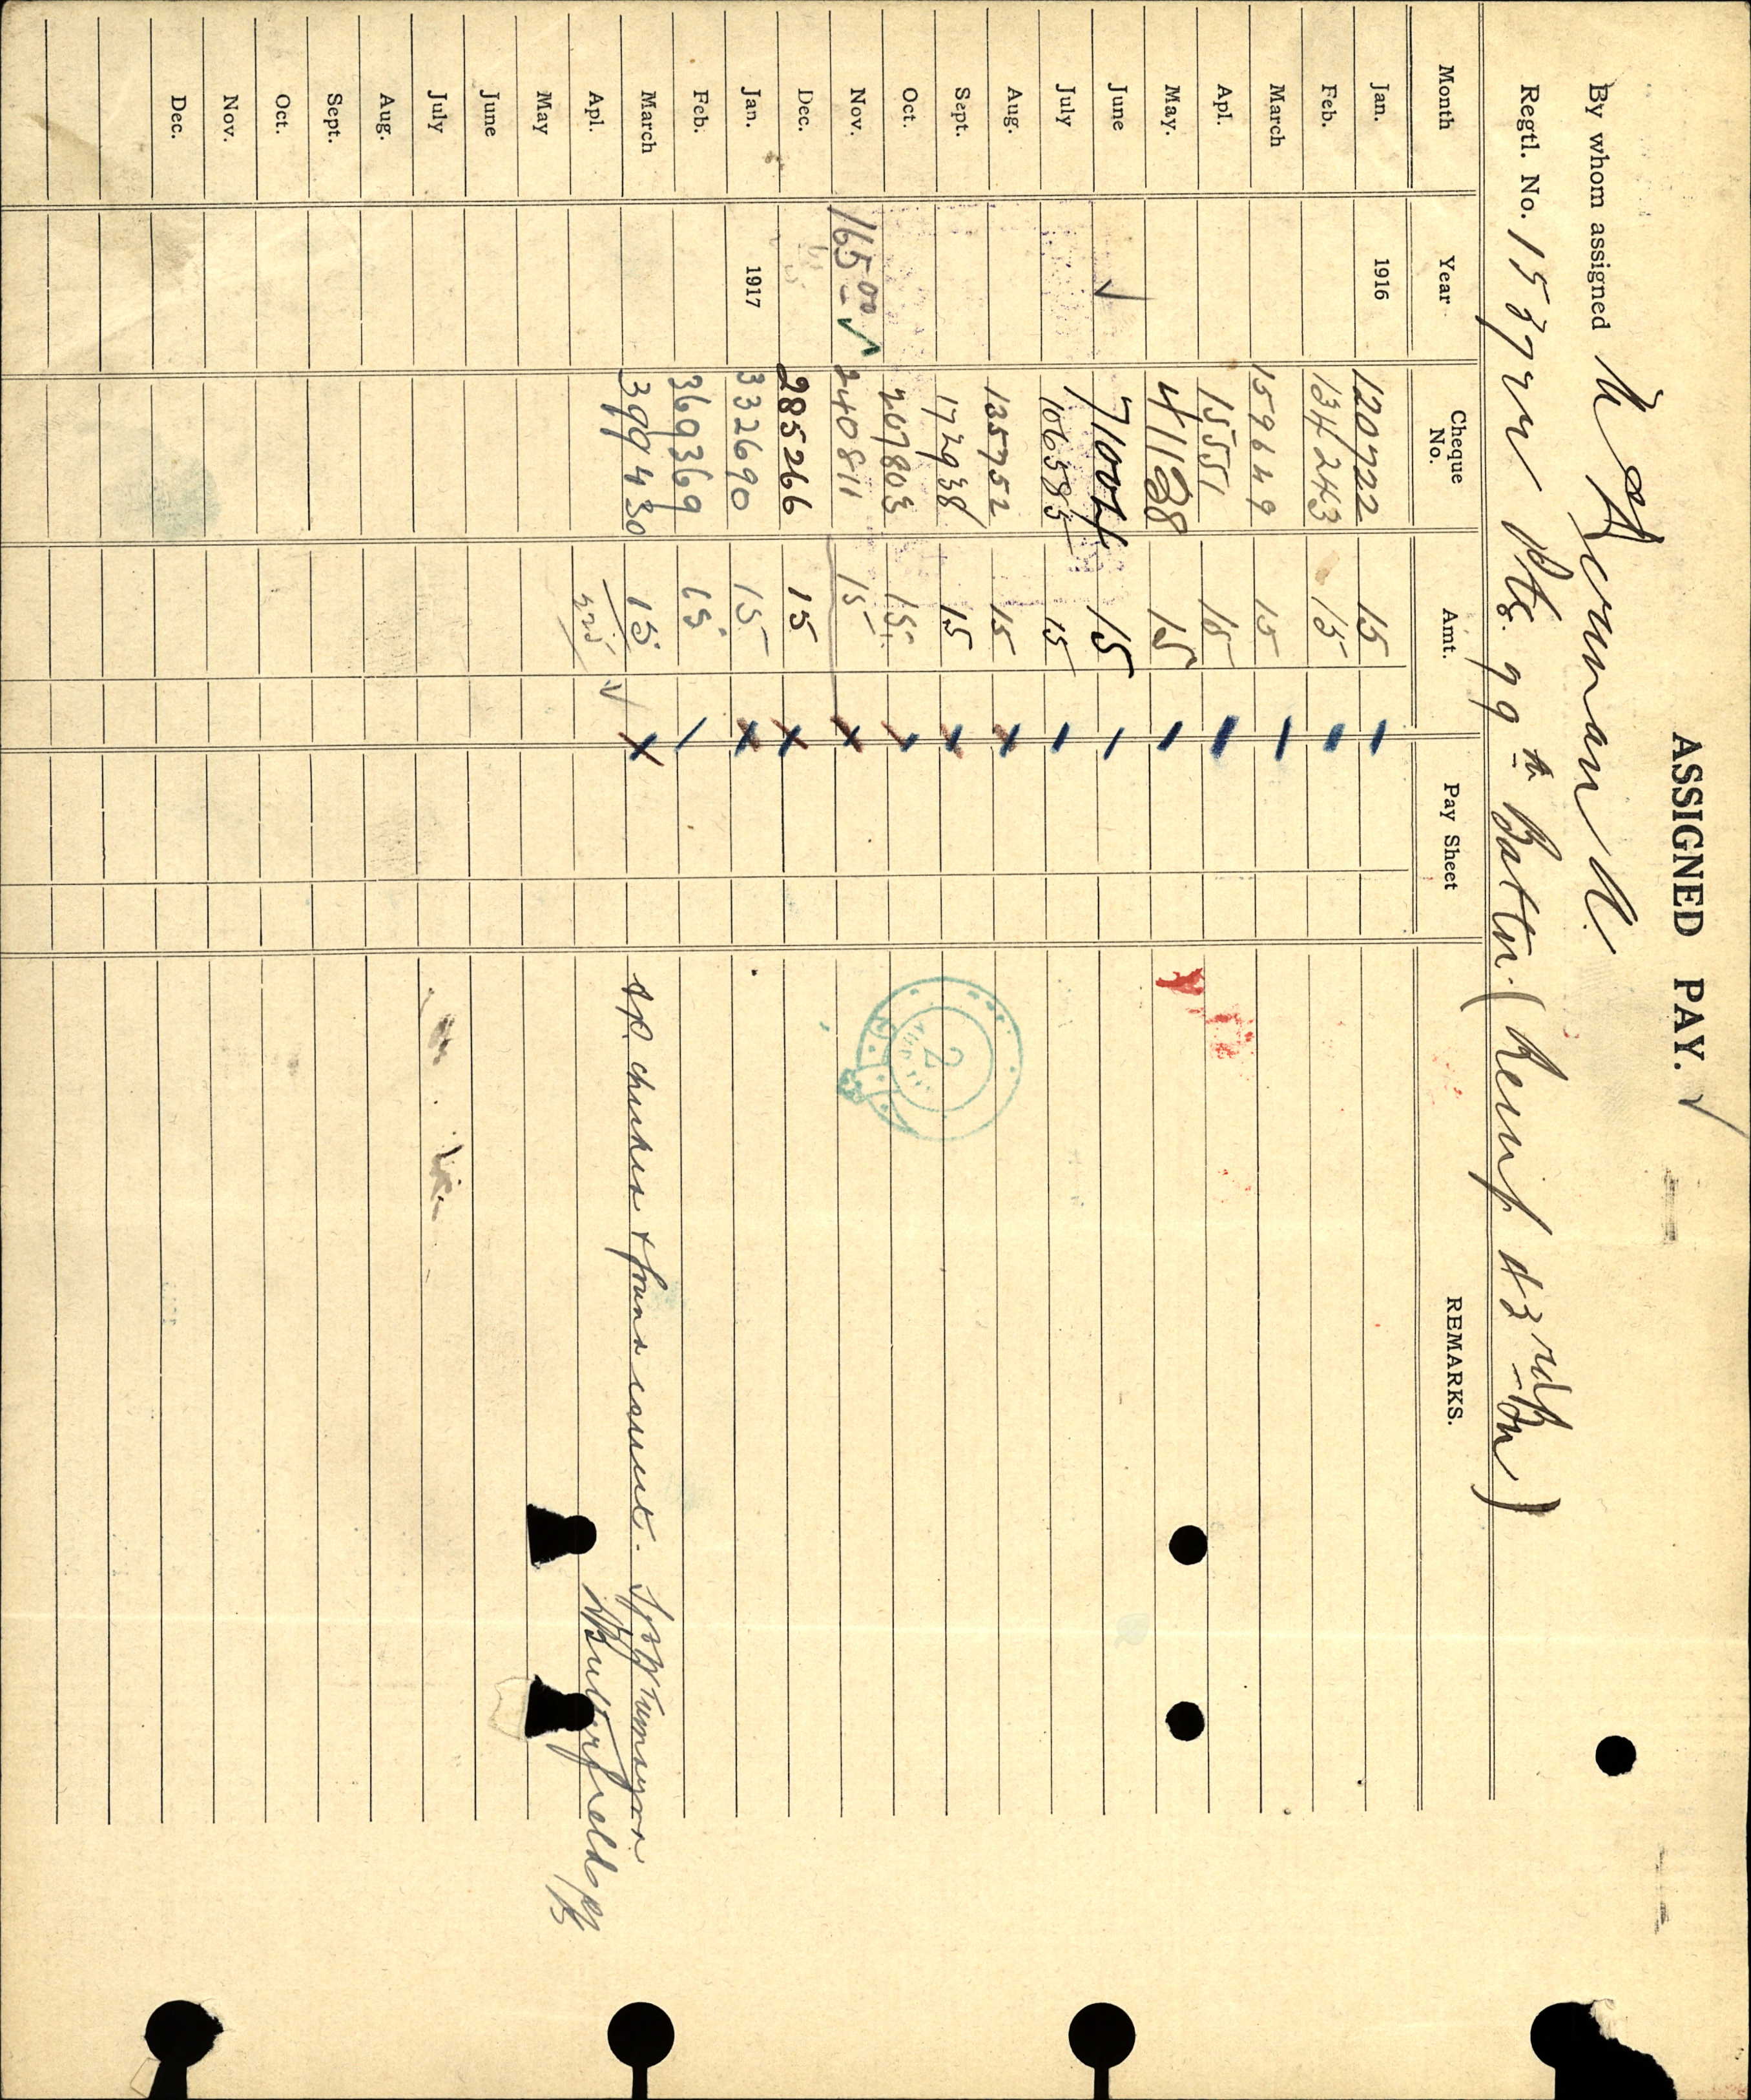 ASSIGNED PAY.
By whom assigned
Regtl. No. Pte. 99th Battn. (Reinf 43rd Bn)
Month Year Cheque No. Amt. Pay Sheet REMARKS.
Jan. 1916 120722 15
Feb. 134243 15
March 159649 15
Apl. 15551 15
May. 41138 15
June 71004 15
July 106585 15
Aug. 135752 15
Sept. 172938 15
Oct. 207803 15
Nov. 165 00 240811 15
Dec. 285266 15
Jan. 1917 332690 15
Feb. 369369 15
March 399430 15
Apl.
May
June
July
Aug.
Sept.
Oct.
Nov.
Dec.
2